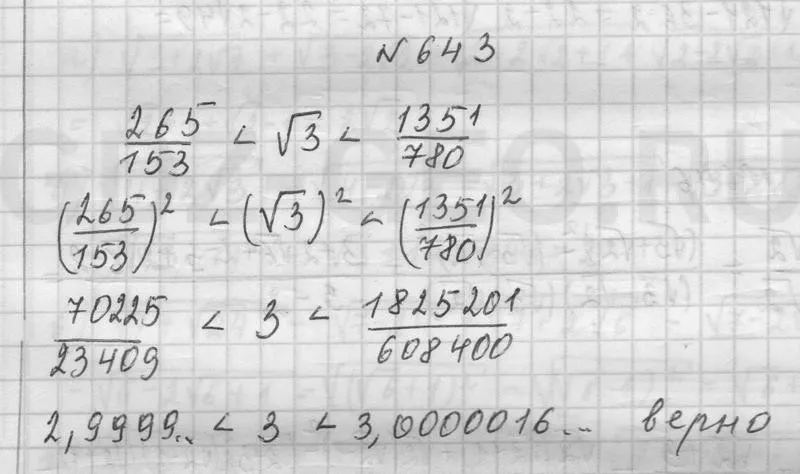 № 643
265/153 < √3 < 1351/780
(265/153)² < (√3)² < (1351/780)²
70225/23409 < 3 < 1825201/608400
2,9999.. < 3 < 3,0000016... верно